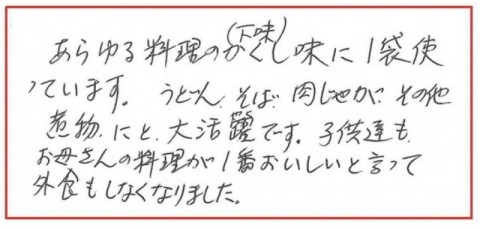 あらゆる料理のかくし味(下味)に1袋使
っています。うどん、そば、肉じゃが、その他
煮物、にと、大活躍です。子供達も、
お母さんの料理が1番おいしいと言って
外食もしなくなりました。